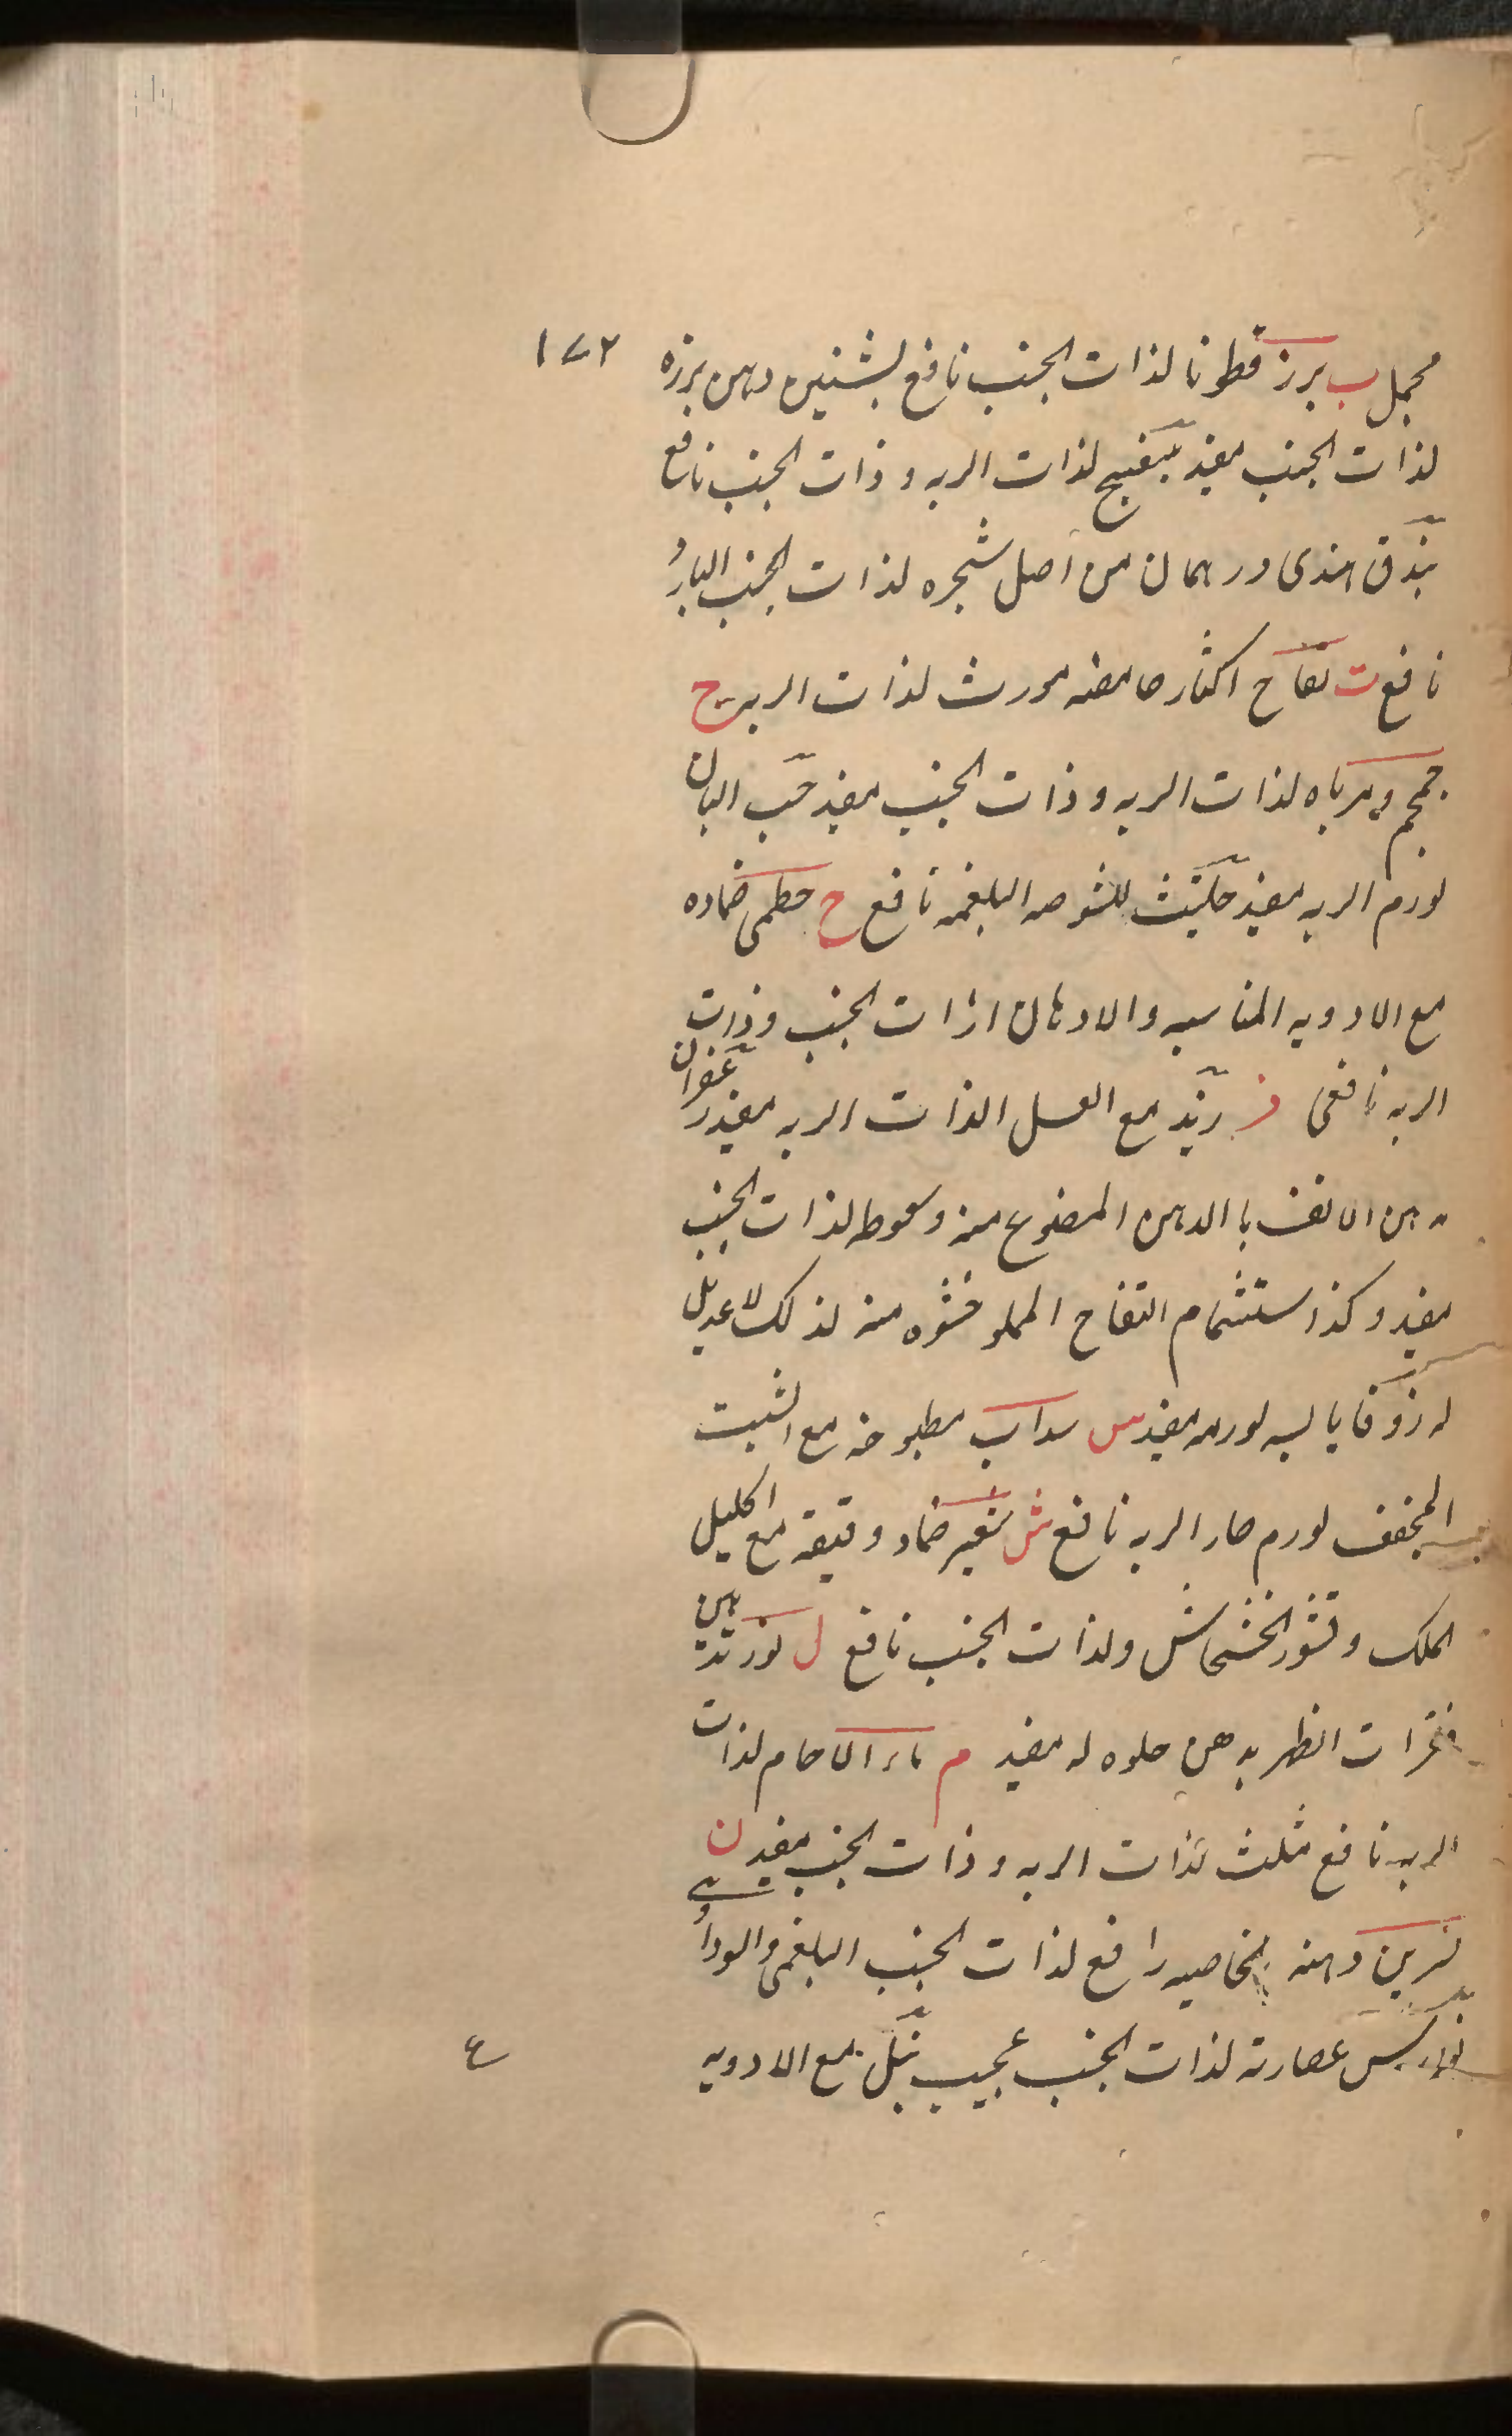 محمل ب برز قطونا لذات الجنب نافع بشنين دهن برزه ١٧٢
لذات الجنب مفيد بنفسج لذات الريه و ذات الجنب نافع
بندق هندى درهمان من اصل شجره لذات الجنب البارد
نافع ت تفاح اكثار حامضه مورث لذات الريه ج
جمجم ومرباه لذات الريه و ذات الجنب مفيد حب البان
لورم الريه مفيد حلتيت للشوصه البلغميه نافع خ خطمى ضماده
مع الادويه المناسبه والادهان لذات الجنب وذات
الريه نافعى ز زبد مع العسل الذات الريه مفيد زعفران
دهن الانف با الدهن المصنوع منه وسعوطه لذات الجنب
مفيد وكذا ستشمام التفاح المملو حشوه منه لذلك لا عديل
له زوفا يابسه لورمه مفيد س سداب مطبوخه مع الشبت
المجفف لورم حار الريه نافع ش شعير ضماد دقيقه مع اكليل
الملك وقشور الخشخاش ولذات الجنب نافع ل لوز تدهين
فقرات الظهر بدهن حلوه له مفيد م ماء اللحام لذات
الريه نافع مثلث لذات الريه و ذات الجنب مفيد ن
نسرين دهنه بالخاصيه رافع لذات الجنب البلغمى والسوداوى
عصارته لذات الجنب عجيب مع الادويه
ع